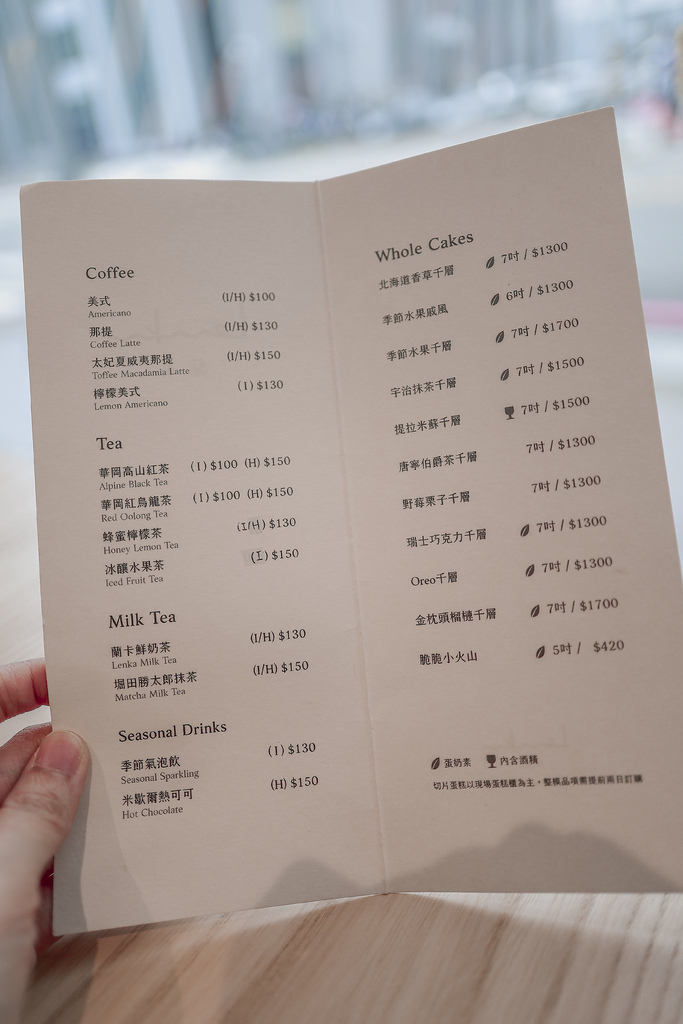 Coffee
美式 (I/H) $100
Americano
那提 (I/H) $130
Coffee Latte
太妃夏威夷那提 (I/H) $150
Toffee Macadamia Latte
檸檬美式 (I) $130
Lemon Americano
Tea
華岡高山紅茶 (I) $100 (H) $150
Alpine Black Tea
華岡紅烏龍茶 (I) $100 (H) $150
Red Oolong Tea
蜂蜜檸檬茶 (I/H) $130
Honey Lemon Tea
冰釀水果茶 (I) $150
Iced Fruit Tea
Milk Tea
蘭卡鮮奶茶 (I/H) $130
Lenka Milk Tea
堀田勝太郎抹茶 (I/H) $150
Matcha Milk Tea
Seasonal Drinks
季節氣泡飲 (I) $130
Seasonal Sparkling
米歇爾熱可可 (H) $150
Hot Chocolate
Whole Cakes
北海道香草千層 7吋 / $1300
季節水果戚風 6吋 / $1300
季節水果千層 7吋 / $1700
宇治抹茶千層 7吋 / $1500
提拉米蘇千層 7吋 / $1500
唐寧伯爵茶千層 7吋 / $1300
野莓栗子千層 7吋 / $1300
瑞士巧克力千層 7吋 / $1300
Oreo千層 7吋 / $1300
金枕頭榴槤千層 7吋 / $1700
脆脆小火山 5吋 / $420
蛋奶素 內含酒精
切片蛋糕以現場蛋糕櫃為主，整模品項需提前兩日訂購